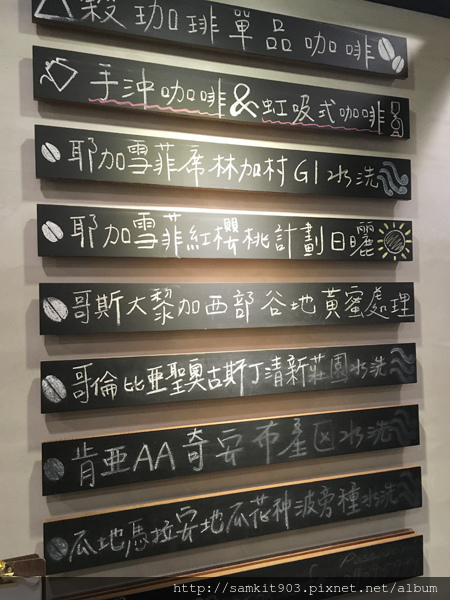 穀珈琲單品咖啡
手沖咖啡&虹吸式咖啡
耶加雪菲席林加村G1水洗
耶加雪菲紅櫻桃計劃日曬
哥斯大黎加西部谷地黃蜜處理
哥倫比亞聖奧古斯丁清新莊園水洗
肯亞AA奇安布產区水洗
瓜地馬拉安地瓜花神波旁種水洗
http://samkit903.pixnet.net/album